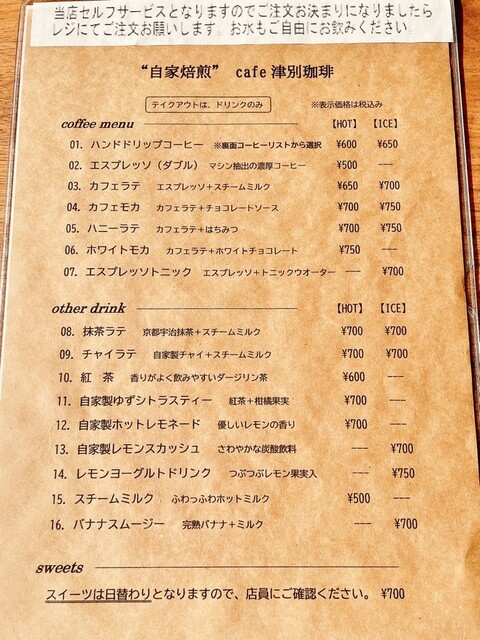 当店セルフサービスとなりますのでご注文お決まりになりましたら
レジにてご注文お願いします。お水もご自由にお飲みください
“自家焙煎” cafe 津別珈琲
テイクアウトは、ドリンクのみ ※表示価格は税込み
coffee menu 【HOT】 【ICE】
01. ハンドドリップコーヒー ※裏面コーヒーリストから選択 ¥600 ¥650
02. エスプレッソ（ダブル） マシン抽出の濃厚コーヒー ¥500 ---
03. カフェラテ エスプレッソ＋スチームミルク ¥650 ¥700
04. カフェモカ カフェラテ＋チョコレートソース ¥700 ¥750
05. ハニーラテ カフェラテ＋はちみつ ¥700 ¥750
06. ホワイトモカ カフェラテ＋ホワイトチョコレート ¥750 ---
07. エスプレッソトニック エスプレッソ＋トニックウオーター --- ¥700
other drink 【HOT】 【ICE】
08. 抹茶ラテ 京都宇治抹茶＋スチームミルク ¥700 ¥700
09. チャイラテ 自家製チャイ＋スチームミルク ¥700 ¥700
10. 紅 茶 香りがよく飲みやすいダージリン茶 ¥600 ---
11. 自家製ゆずシトラスティー 紅茶＋柑橘果実 ¥700 ---
12. 自家製ホットレモネード 優しいレモンの香り ¥700 ---
13. 自家製レモンスカッシュ さわやかな炭酸飲料 --- ¥700
14. レモンヨーグルトドリンク つぶつぶレモン果実入 --- ¥750
15. スチームミルク ふわっふわホットミルク ¥500 ---
16. バナナスムージー 完熟バナナ＋ミルク --- ¥700
sweets
スイーツは日替わりとなりますので、店員にご確認ください。 ¥700